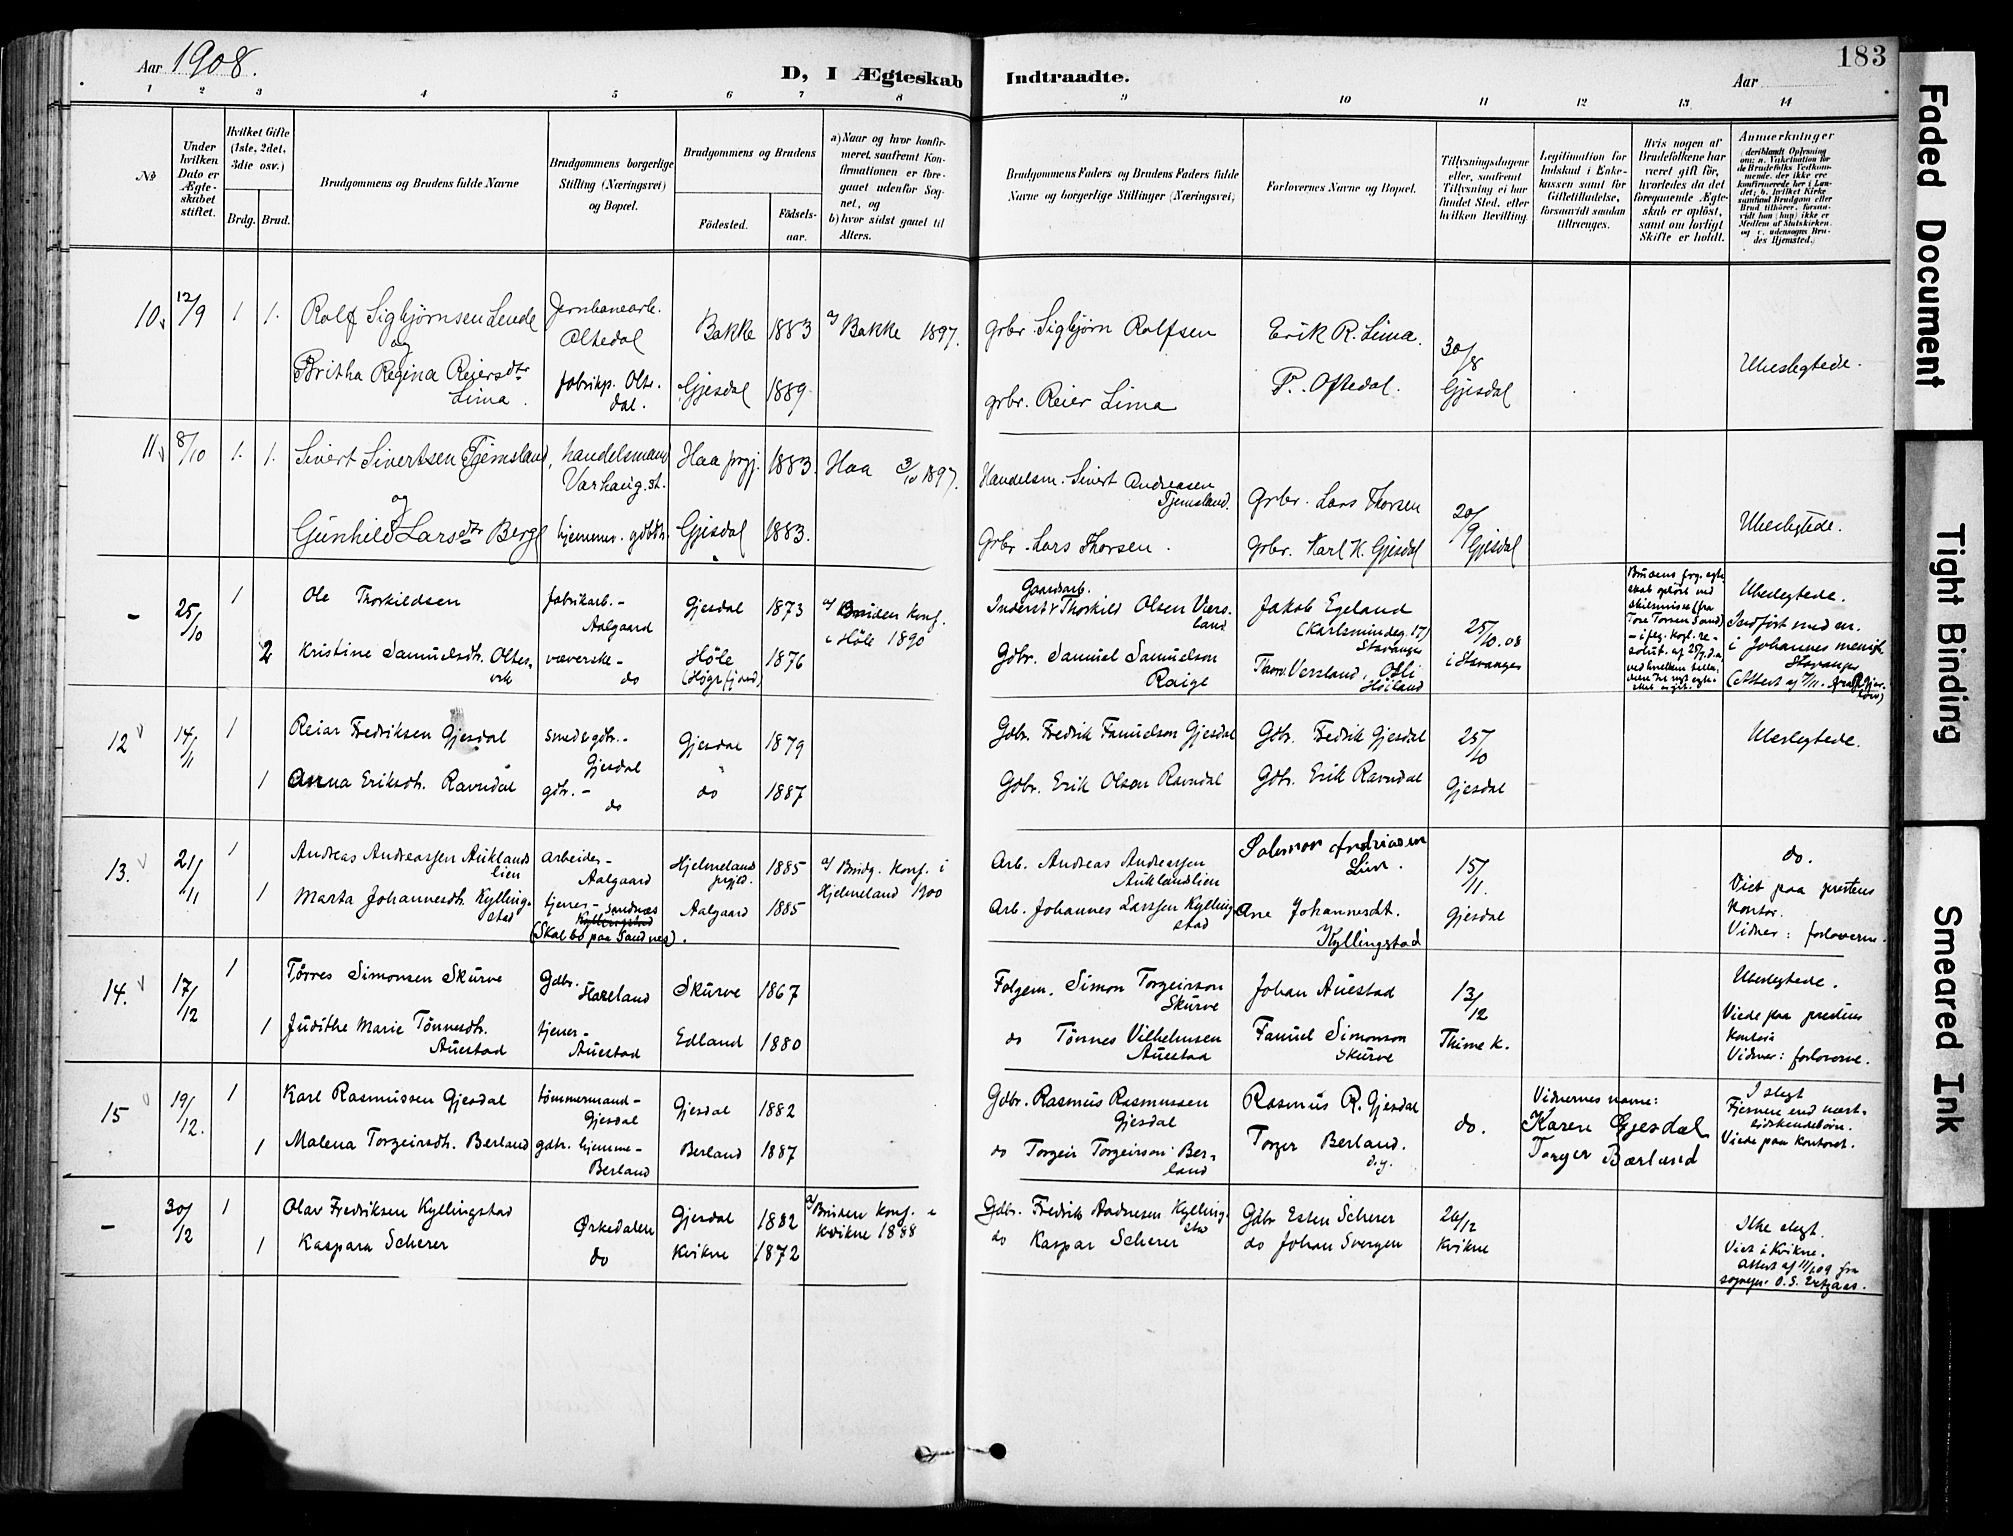 Aar 1908.
D, I Ægteskab Indtraadte.
Aar
183
1 2 3 4 5 6 7 8 9 10 11 12 13 14
No
Under hvilken Dato er Ægteskabet stiftet.
Hvilket Gifte (1ste, 2det, 3die osv.)
Brdg. Brud.
Brudgommens og Brudens fulde Navne
Brudgommens borgerlige Stilling (Næringsvei) og Bopæl.
Brudgommens og Brudens
Födested. Födselsaar.
a) Naar og hvor konfirmeret, saafremt Konfirmationen er foregaaet udenfor Sognet, og
b) hvor sidst gaaet til Alters.
Brudgommens Faders og Brudens Faders fulde Navne og borgerlige Stillinger (Næringsvei)
Forlovernes Navne og Bopæl.
Tillysningsdagene eller, saafremt Tillysning ei har fundet Sted, efter hvilken Bevilling.
Legitimation for Indskud i Enkekassen samt for Giftetilladelse, forsaavidt saadan tiltrænges.
Hvis nogen af Brudefolkene har været gift för, hvorledes da det foregaaende Ægteskab er oplöst, samt om lovligt Skifte er holdt.
Anmerkninger
10 12/9 1 1. Rolf Sigbjørnsen Lende Jernbanearb. Oltedal Bakke 1883 a) Bakke 1897. grbr. Sigbjørn Rolfsen Erik R. Lima. 30/8 Gjesdal Ubeslegtede.
og
Britha Regina Reiersdtr Lima. fabrikp. Oltedal. Gjesdal 1889. grbr. Reier Lima P. Oftedal.
11 8/10 1. 1. Sivert Sivertsen Tjemsland, handelsmand Varhaug st. Haa prgj. 1883. Haa 3/10 1897. Handelsm. Sivert Andreasen Tjemsland. Grbr. Lars Thorsen 20/9 Gjesdal Ubeslegtede.
og
Gunhild Larsdtr Berge hjemmev. gdbdtr. Gjesdal 1883. Grbr. Lars Thorsen. Grbr. Karl K. Gjesdal
- 25/10 1 Ole Thorkildsen fabrikarb. - Aalgaard Gjesdal 1873 a) Bruden konf. i Höle 1890 Gaardarb. Thorkild Olsen Værsland Jakob Egeland (Karlsmindeg. 17) Stavanger 25/10.08 i Stavanger Ubeslegtede.
2 Kristine Samuelsdtr. Oltesvik væverske - do Höle (Högsfjord) 1876 Gdbr. Samuel Samuelson Raige Thom. Versland, Höiland
Indfört med an. i Johannes menigh. Stavanger
12 14/11 1 Reiar Fredriksen Gjesdal smed & gdbr. - Gjesdal Gjesdal 1879 Gdbr. Fredrik Famuelson Gjesdal Gdbr. Fredrik Gjesdal 25/10 Gjesdal Ubeslegtede.
1 Anna Eriksdtr. Ravndal gdtr. - do do 1887 Gdbr. Erik Olson Ravndal Gdbr. Erik Ravndal
13. 21/11 1 Andreas Andreassen Auklandslien arbeider - Aalgaard Hjelmeland prgjld. 1885 a) Brudg. konf. i Hjelmeland 1900 Arb. Andreas Andreassen Auklandlien Salomon Andreasen Lien. 15/11. Gjesdal do.
1 Marta Johannesdtr. Kyllingstad tjener - Sandnes (Skal bo paa Sandnes). Aalgaard 1885 Arb. Johannes Larssen Kyllingstad Ane Johannesdt. Kyllingstad
Viet paa prestens kontor. Vidner: forloverne.
14. 17/12 1 Törres Simonsen Skurve Gdbr. Hareland Skurve 1867 Folgem. Simon Torgeirson Skurve Johan Auestad 13/12 Thime k. Ubeslegtede.
1 Judithe Marie Tönnesdtr. Auestad tjener - Auestad Edland 1880 do Tönnes Vilhelmsen Auestad Famuel Simonson Skurve
Viede paa prestens kontoir Vidner: forloverne.
15 19/12. 1 Karl Rasmussen Gjesdal tömmermand - Gjesdal Gjesdal 1882 Gdbr. Rasmus Rasmussen Gjesdal Rasmus R. Gjesdal do. Vidnernes navne: Karen Gjesdal Torger Bærland
1 Malena Torgeirsdtr. Berland gdtr. hjemme - Berland Berland 1887 do Torgeir Torgeirson Berland Torger Berland.
I slegt Fjernere end næstsödskendebörn. Viede paa kontoret.
- 30/12 1 Olav Fredriksen Kyllingstad Ørkedalen Gjesdal 1882 a) Bruden konf. i Kvikne 1888 Gdbr. Fredrik Aadnesen Kyllingstad Gdbr Esten Scherer 26/12 Kvikne
1 Kaspara Scherer do Kvikne 1872 do Kaspar Scherer do Johan Svergen
Ikke slegt. Viet i Kvikne. Attest af 11/1 09 fra sognepr. O. S.
Faded Document
Tight Binding
Smeared Ink